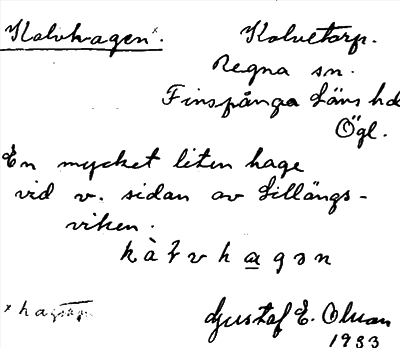 Kalvhagen.ˣ Kalvetorp.
Regna sn.
Finspånga Läns hd
Ögl.
En mycket liten hage
vid v. sidan av Lillängs-
viken.
kàłvhagən
Gustaf E. Olsson
1933